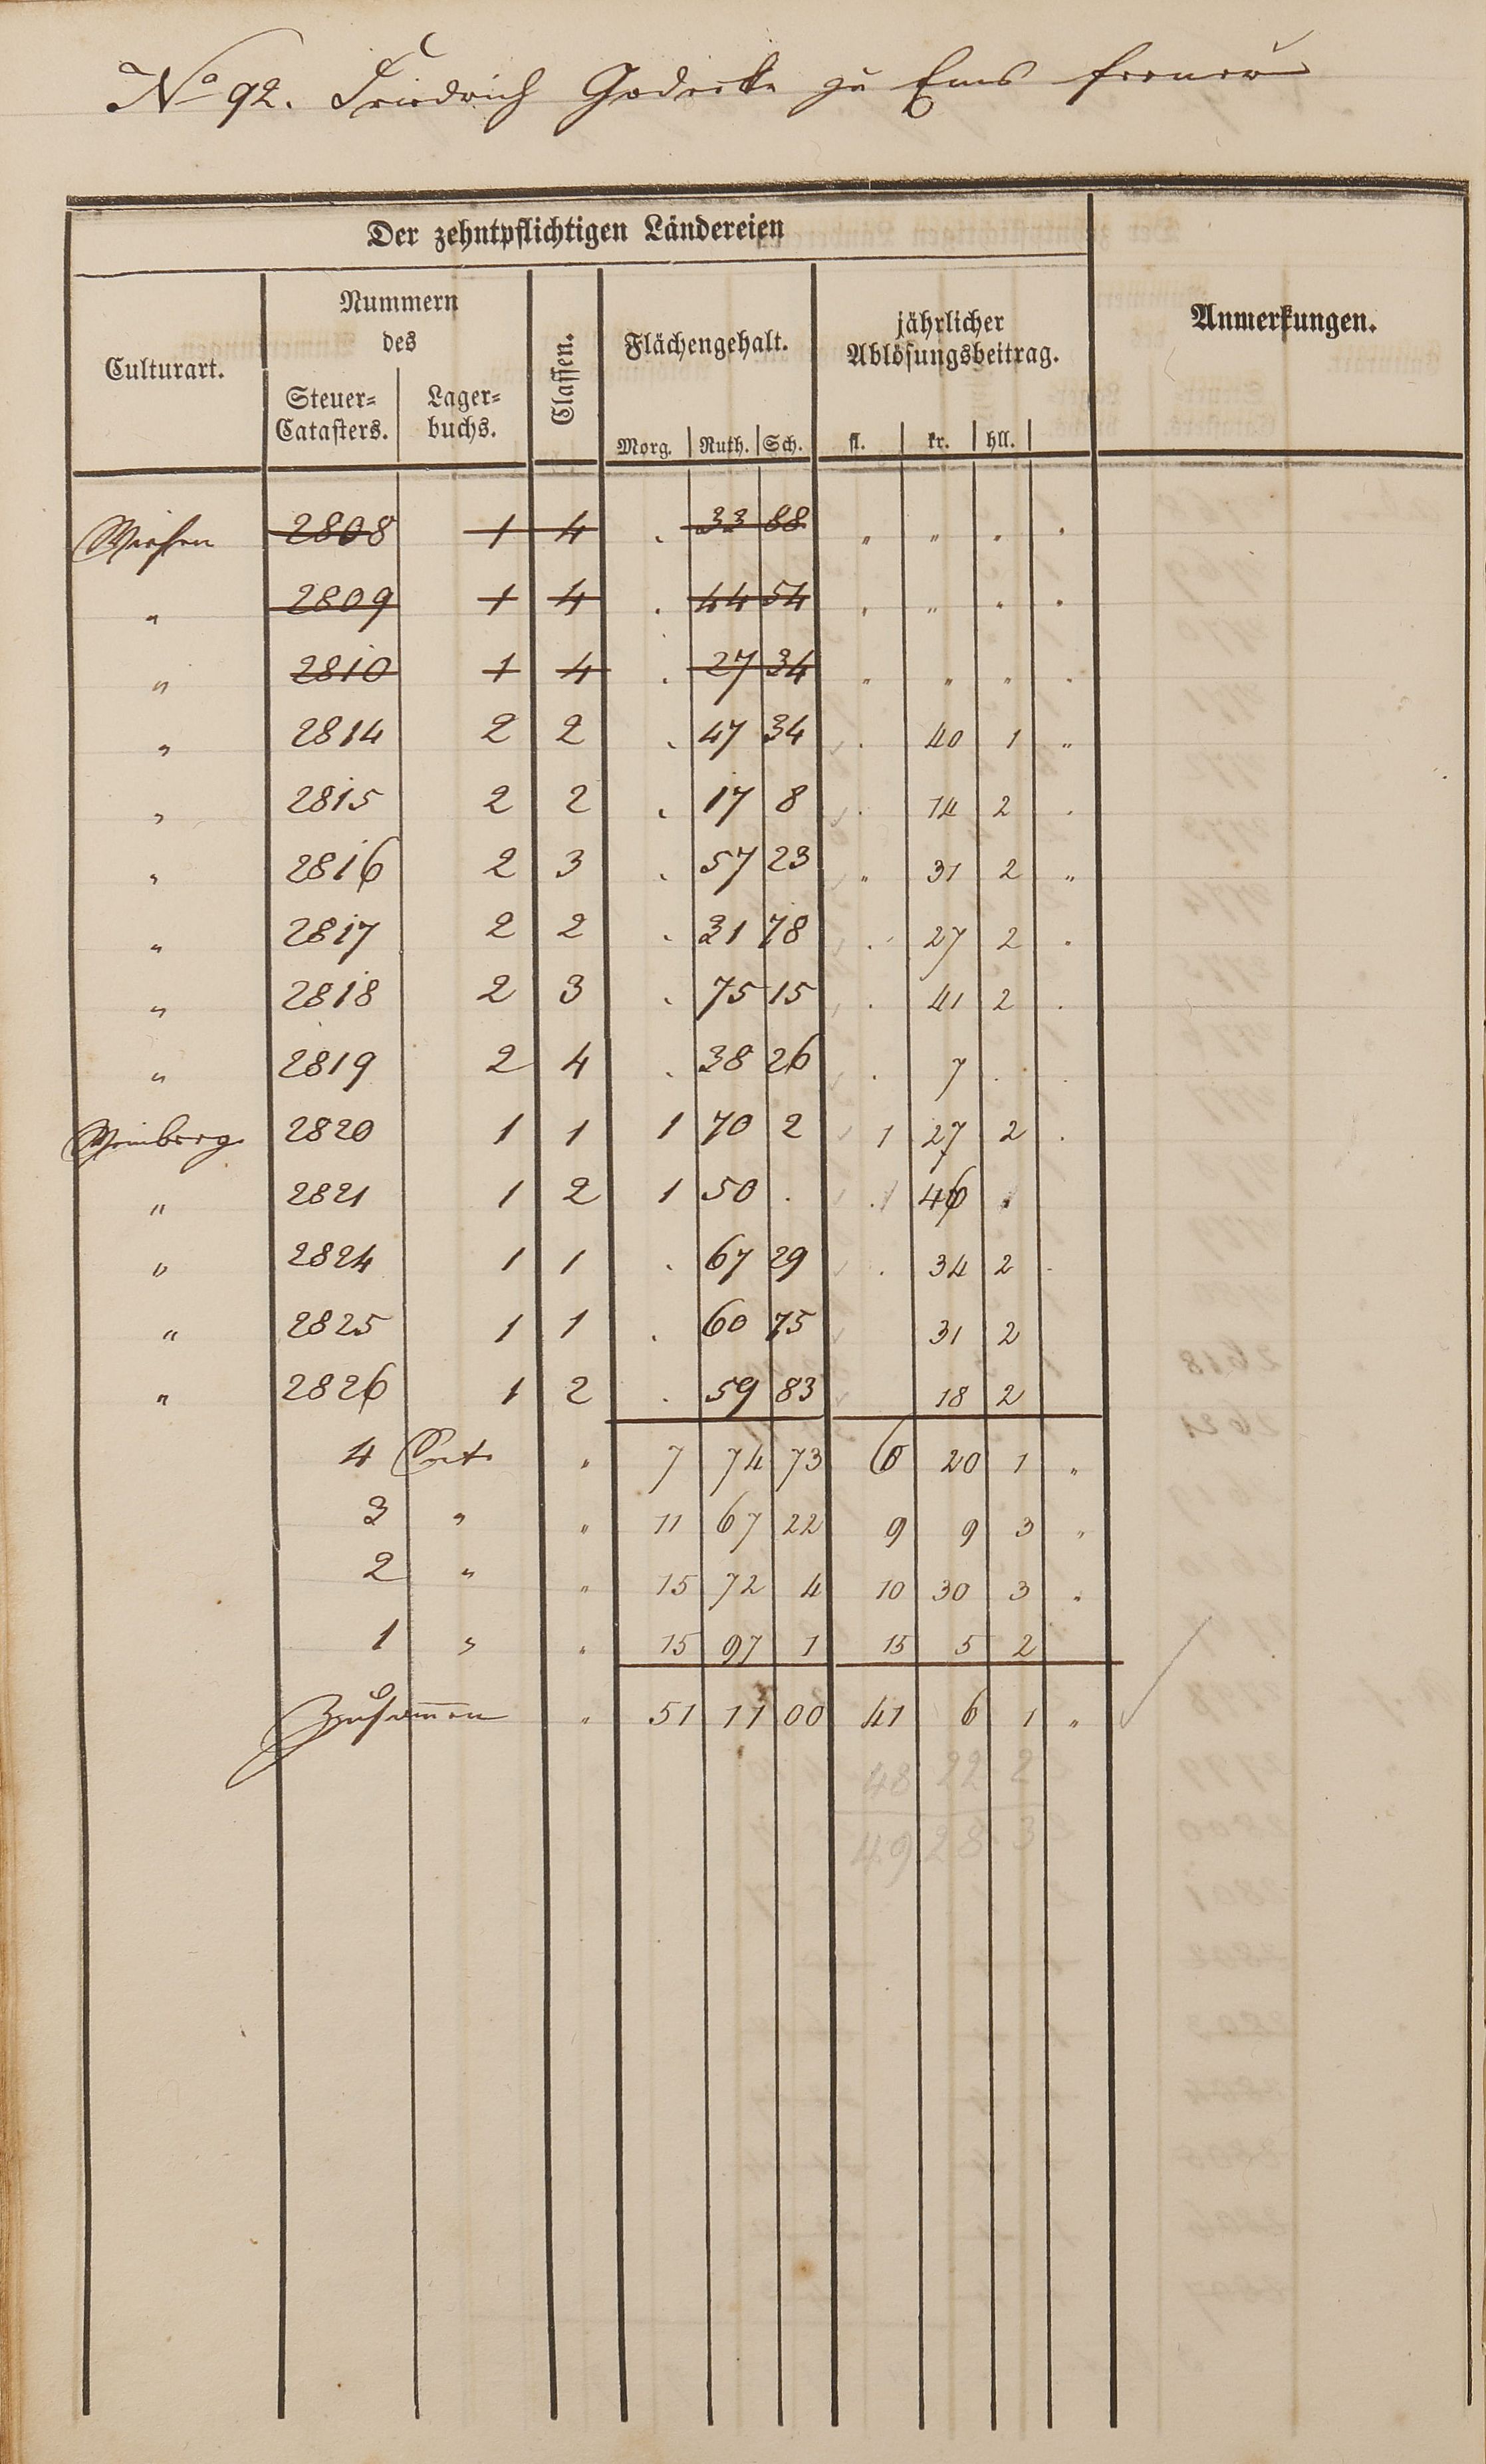 No 92. Friedrich Goedecke zu Ems ferner
Der zehntpflichtigen Ländereien
Culturart.
Nummern
des
Steuer-
Catasters.
Lager-
buchs.
Classen.
Flächengehalt.
Morg. Ruth. Sch.
jährlicher
Ablösungsbeitrag.
fl. kr. hll.
Anmerkungen.
Wiesen 2808 1 4 . 33 88 " " . .
" 2809 1 4 . 44 54 . " . .
" 2810 1 4 . 27 34 " " " .
" 2814 2 2 . 47 34 . 40 1 "
" 2815 2 2 . 17 8 . 14 2 .
" 2816 2 3 . 57 23 " 31 2 "
" 2817 2 2 . 31 78 . 27 2 .
" 2818 2 3 . 75 15 . 41 2 .
" 2819 2 4 . 38 26 . 7 . .
Weinberg 2820 1 1 1 70 2 1 27 2 .
" 2821 1 2 1 50 . . 46 .
" 2824 1 1 . 67 29 . 34 2 .
" 2825 1 1 . 60 75 31 2
" 2826 1 2 . 59 83 18 2
4 Cat. " 7 74 73 6 20 1 "
3 " " 11 67 22 9 9 3 "
2 " " 15 72 4 10 30 3 "
1 " " 15 97 1 15 5 2
Zusammen " 51 11 00 41 6 1 "
48 22 2
49 28 3